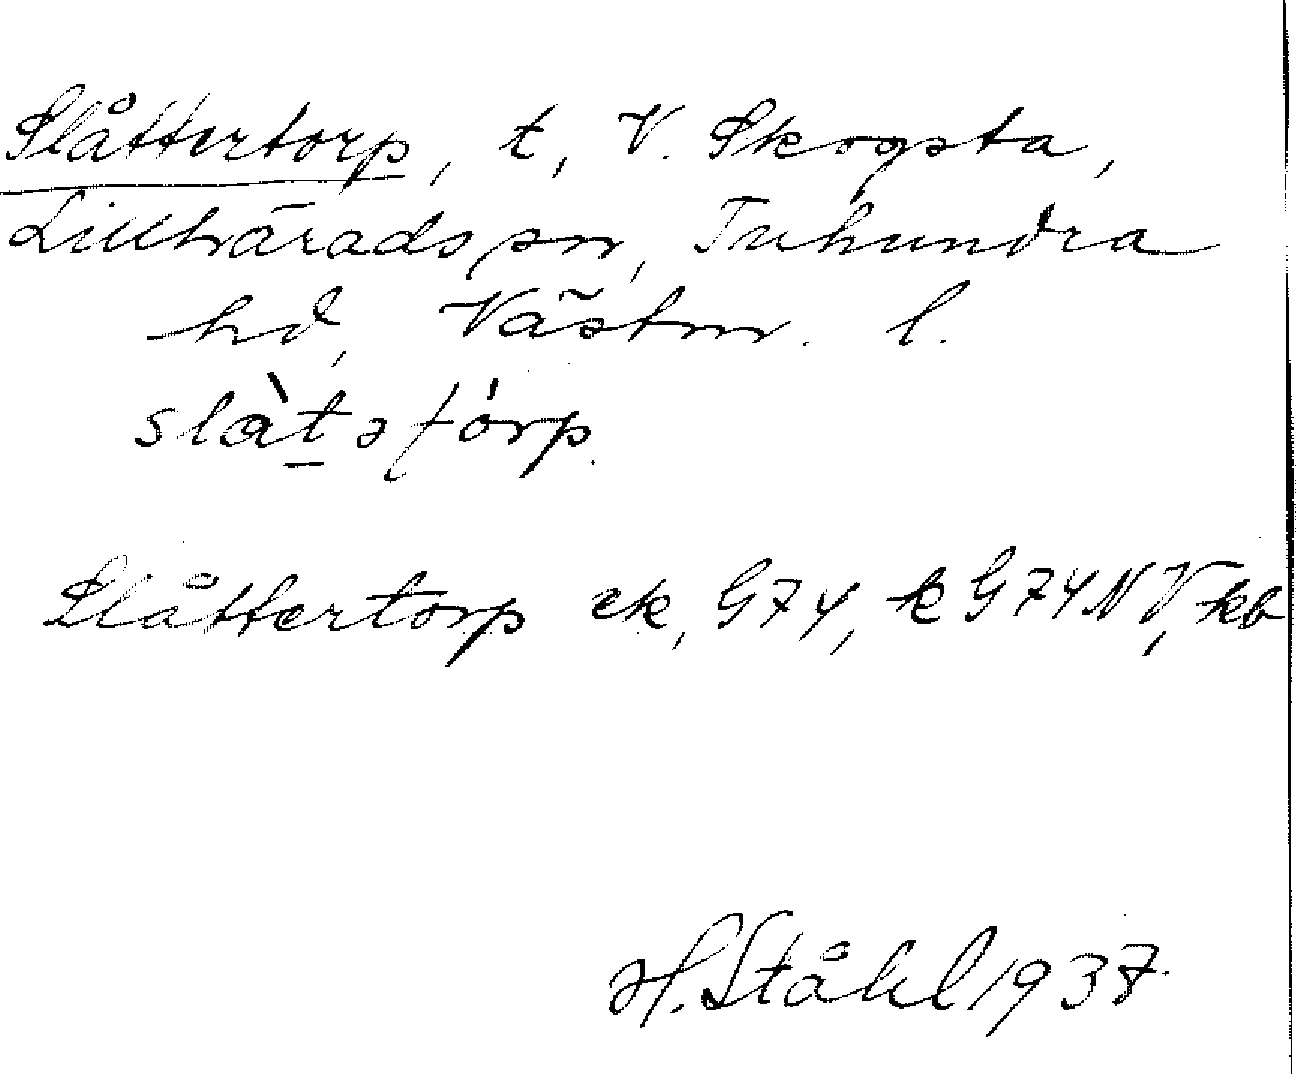 Slåttertorp, t, V. Skogsta,
Lillhärads sn, Tuhundra
hd, Västm. l.
slàtəʃórp.
Slåttertorp ek, G74, k G74NV, kb
H. Ståhl 1937